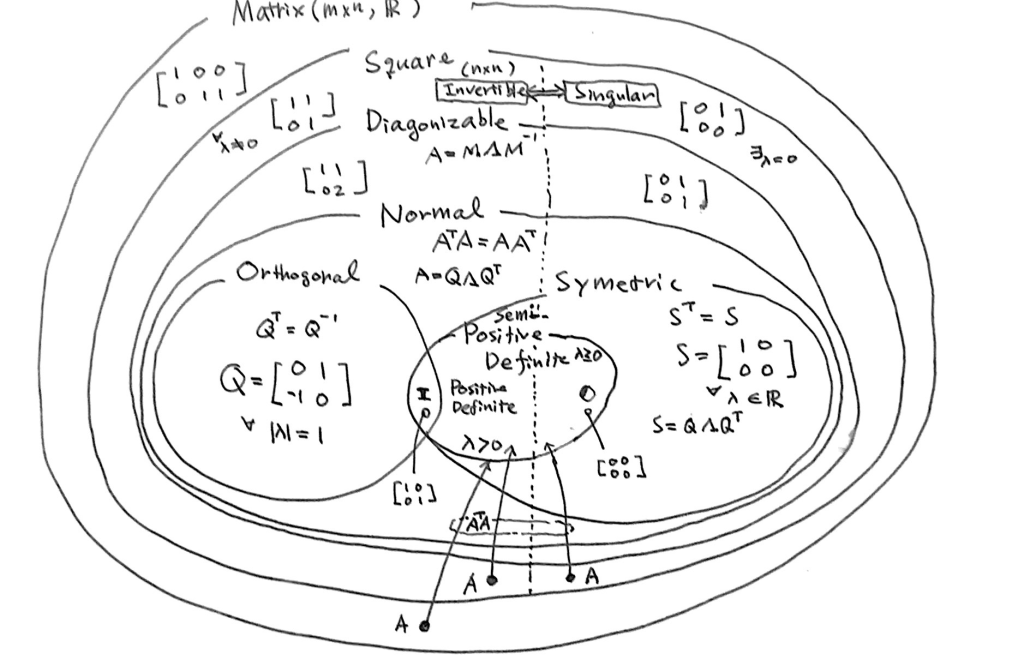 Matrix (m×n, ℝ)
Square (n×n)
Invertible ⟷ Singular
[1 0 0
0 1 1]
[1 1
0 1]
∀λ≠0
[0 1
0 0]
∃λ=0
Diagonizable
A = MΛM⁻¹
[1 1
0 2]
[0 1
0 1]
Normal
AᵀA = AAᵀ
A=QΛQᵀ
Orthogonal
Qᵀ = Q⁻¹
Q = [0 1
-1 0]
∀ |λ| = 1
Symetric
Sᵀ = S
S = [1 0
0 0]
∀λ ∈ ℝ
S=QΛQᵀ
Semi-
Positive
Definite λ≥0
I
Positive
Definite
λ>0
O
[1 0
0 1]
[0 0
0 0]
AᵀA
A
A
A